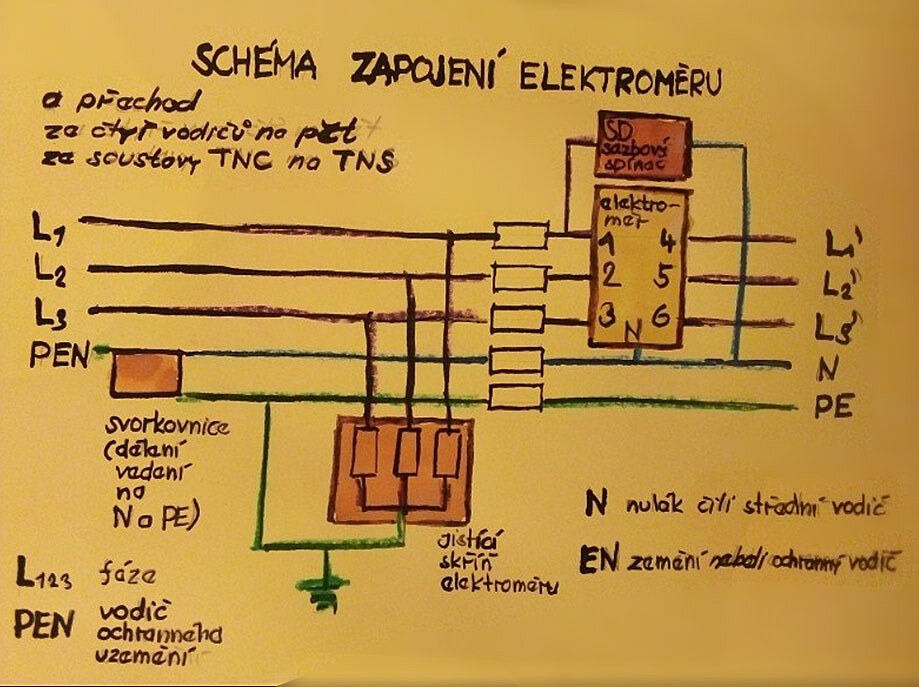 SCHÉMA ZAPOJENÍ ELEKTROMĚRU
a přechod
ze čtyř vodičů na pět
ze soustavy TNC na TNS
SD
sazbový
spínač
elektro-
měr
L1
1 4
L1'
L2
2 5
L2'
L3
3 6
L3'
N
PEN
N
PE
svorkovnice
(dělení
vedení
na
N a PE)
jistící
skříň
elektroměru
N nulák čili střední vodič
EN zemění neboli ochranný vodič
L123 fáze
PEN vodič
ochranného
uzemění